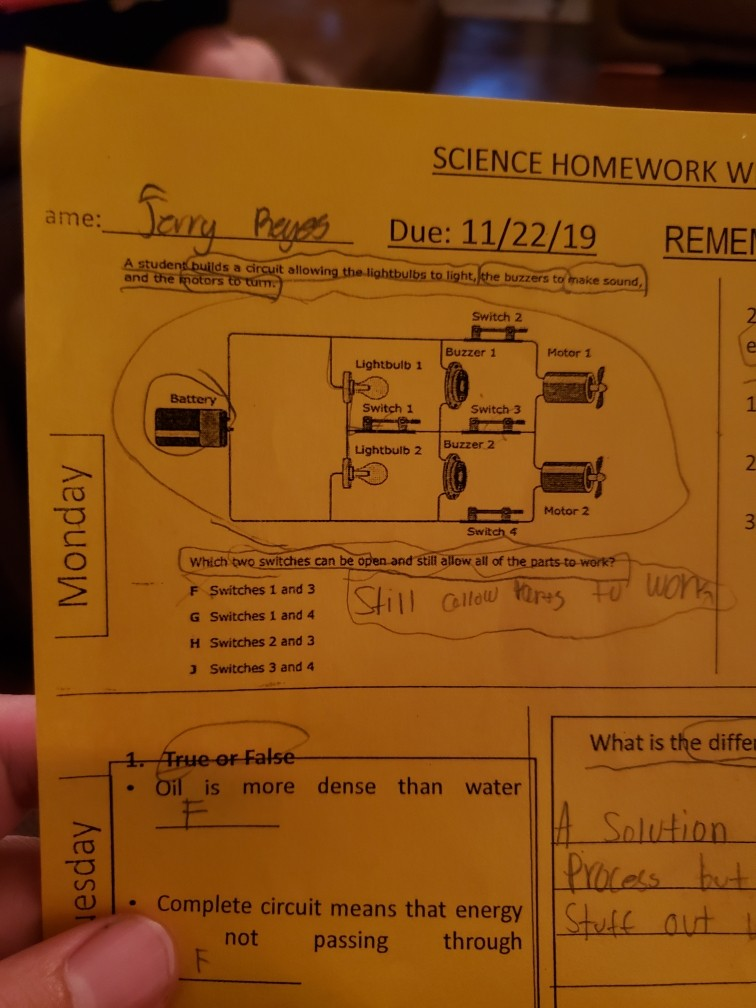 SCIENCE HOMEWORK W
ame: Jerry Reyes Due: 11/22/19 REME
A student builds a circuit allowing the lightbulbs to light, the buzzers to make sound,
and the motors to turn.
Switch 2
Buzzer 1 Motor 1
Lightbulb 1
Battery
Switch 1 Switch 3
Buzzer 2
Lightbulb 2
Motor 2
Switch 4
Monday
Which two switches can be open and still allow all of the parts to work?
F Switches 1 and 3
G Switches 1 and 4
H Switches 2 and 3
J Switches 3 and 4
Still allow Parts to work
2
e
1
2
3
1. True or False
• Oil is more dense than water
F
• Complete circuit means that energy
not passing through
F
uesday
What is the differ
A Solution
Process but
Stuff out